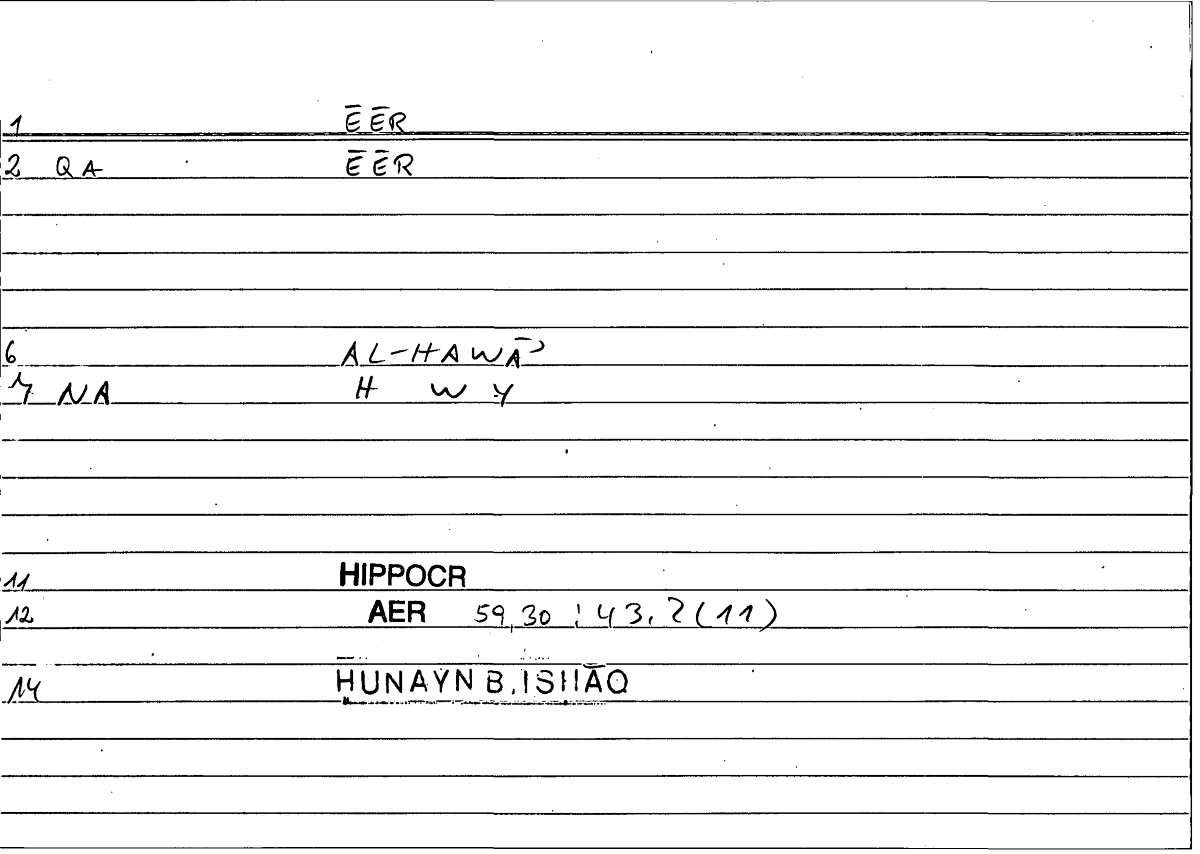 1 ĒĒR
2 QA ĒĒR
6 AL-HAWĀʾ
7 NA H W Y
11 HIPPOCR
12 AER 59,30 : 43,2(11)
14 ḤUNAYN B. ISḤĀQ